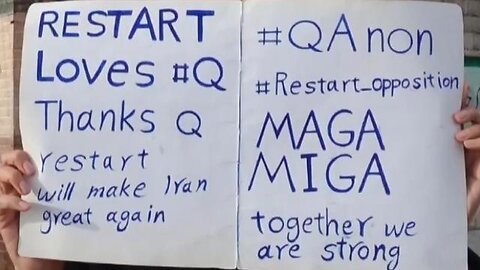 RESTART
Loves #Q
Thanks Q
restart
will make Iran
great again
#QAnon
#Restart_opposition
MAGA
MIGA
together we
are strong